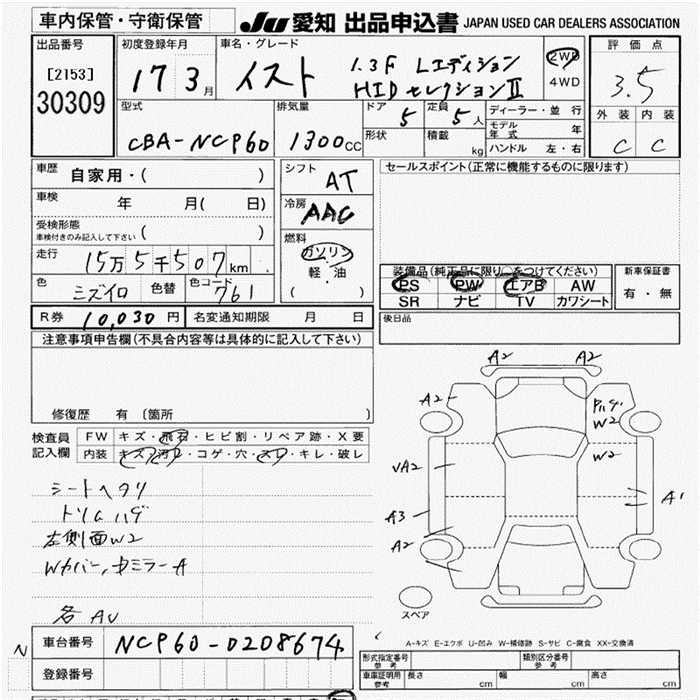 車内保管・守衛保管 JU 愛知 出品申込書 JAPAN USED CAR DEALERS ASSOCIATION
出品番号 初度登録年月 車名・グレード 評価点
[2153] 17 3月 イスト 1.3F Lエディション 2WD 3.5
30309 HIDセレクションⅡ 4WD
型式 排気量 ドア 定員 ディーラー・並行 外装 内装
CBA-NCP60 1300cc 5 5人 モデル年式 年 C C
形状 積載 kg ハンドル 左・右
車歴 自家用・( ) シフト AT セールスポイント(正常に機能するものに限ります)
車検 年 月( 日) 冷房 AAC
受検形態
車検付きのみ記入して下さい ( ) 燃料
走行 15万5千507km ガソリン
軽・油
( )
装備品(純正品に限り○をつけてください) 新車保証書
色 ミズイロ 色替 色コード 761 PS PW エアB AW 有・無
SR ナビ TV カワシート
R券 10,030円 名変通知期限 月 日 後日品
注意事項申告欄(不具合内容等は具体的に記入して下さい)
修復歴 有〔箇所 〕
検査員記入欄 FW キズ・飛石・ヒビ割・リペア跡・X要
内装 キズ・汚れ・コゲ・穴・スレ・キレ・破レ
シートヘタリ
トリムハゲ
左側面W2
Wカバー,ミラーA
各AU
A2 A2
A2 ハゲ
W2
W2
A2
A1
A3
A2
スペア
A-キズ E-エクボ U-凹み W-補修跡 S-サビ C-腐食 XX-交換済
N 車台番号 NCP60-0208674
登録番号
形式指定番号 参考 類別区分番号 参考
車庫証明用 参考 長さ cm 幅 cm 高さ cm